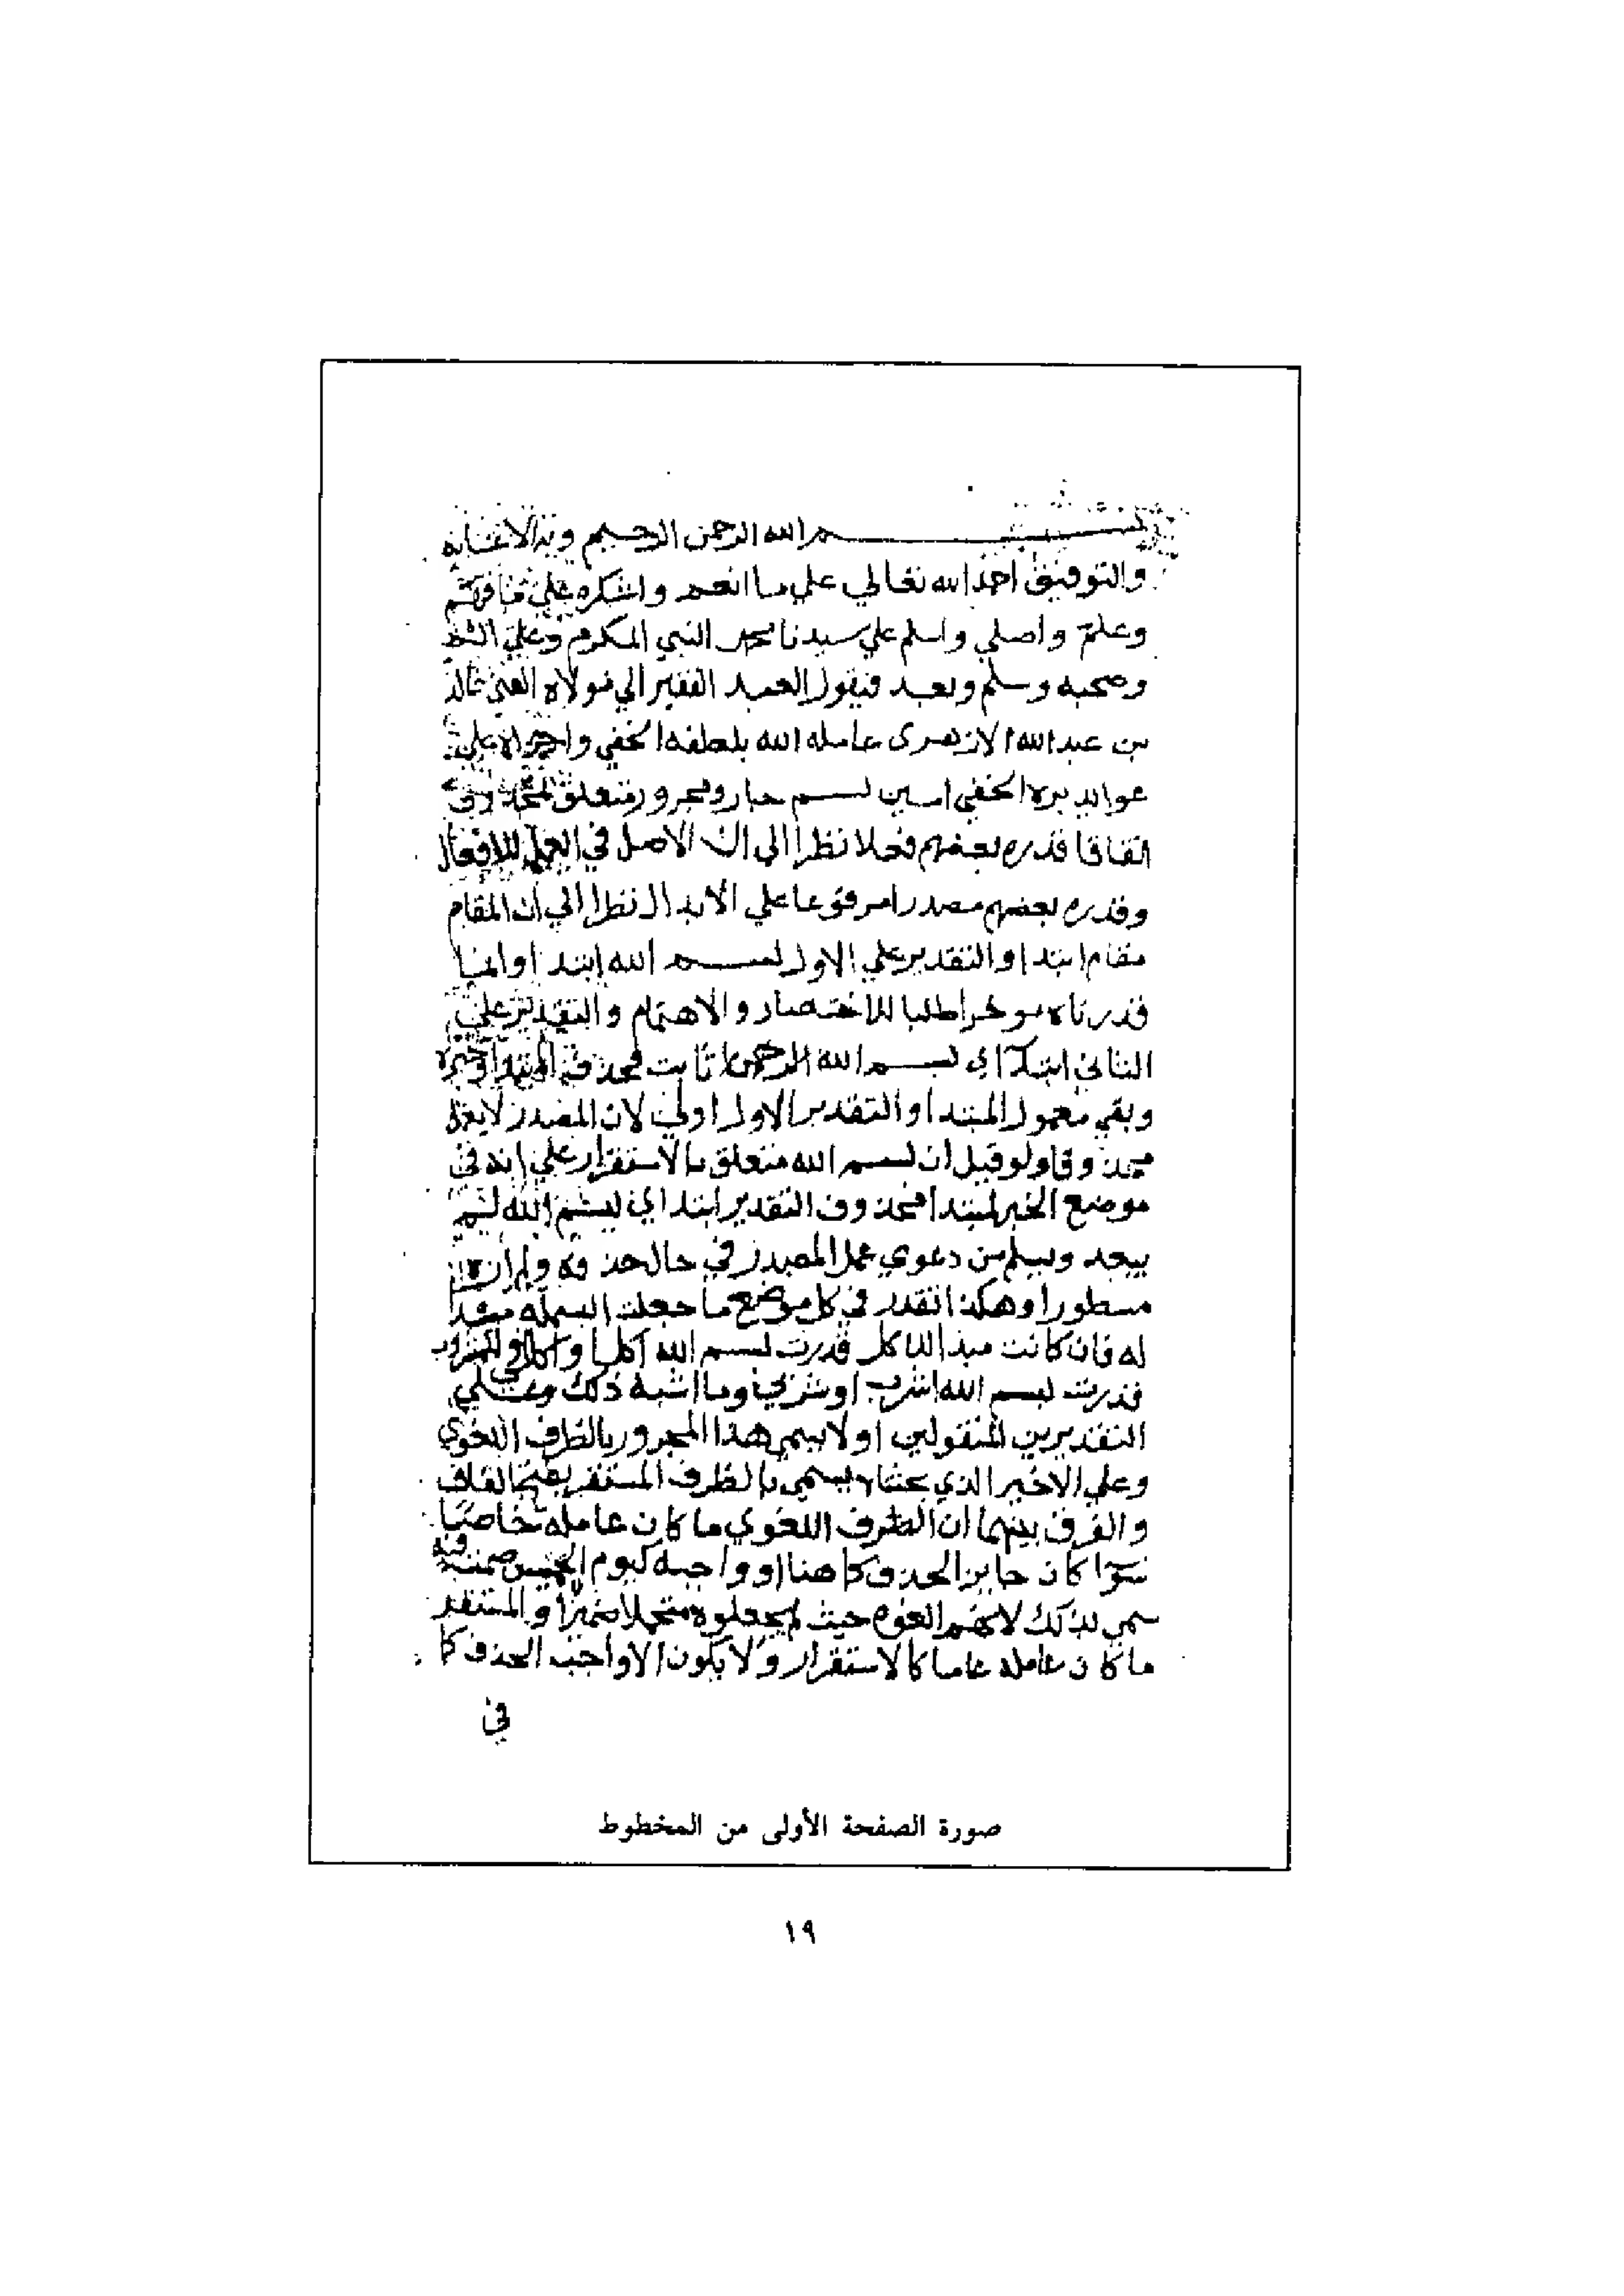 بسم الله الرحمن الرحيم وبه الاعانه
والتوفيق احمد الله تعالي علي ما انعم واشكره علي
وعلم واصلي واسلم علي سيدنا محمد النبي المكرم وعلي
وصحبه وسلم وبعد فيقول العبد الفقير الي مولاه الغني خالد
بن عبد الله الازهري عامله الله بلطفه الخفي واجراه علي
عوايد بره الحفي امين بسم جار ومجرور متعلق بمحذوف
اتفاقا قدره بعضهم فعلا نظرا الي ان الاصل في العمل للافعال
وقدره بعضهم مصدرا مرفوعا علي الابتدا نظرا الي ان المقام
مقام ابتدا والتقدير علي الاول بسم الله ابتدا وانما
قدرناه موخرا طلبا للاختصار والاهتمام والتقدير علي
الثاني ابتدآي بسم الله الرحمن ثابت فحذف المبتدا وخبره
وبقي معمول المبتدا والتقدير الاول اولي لان المصدر لا يعمل
محذوفا ولو قيل ان بسم الله متعلق بالاستقرار علي انه في
موضع الخبر لمبتدا محذوف التقدير ابتداي بسم الله لم
يبعد ويسلم من دعوي عمل المصدر في حال حذفه ولم اره
مسطورا وهكذا تقدر في كل موضع ما جعلت البسملة مبتدا
له فان كانت مبدا للاكل قدرت بسم الله آكل او اكلي او للشرب
قدرت بسم الله اشرب او شربي وما اشبه ذلك وعلي
التقديرين المنقولين اولا يسمي هذا المجرور بالظرف اللغوي
وعلي الاخير الذي بحثناه يسمي بالظرف المستقر بفتح القاف
والفرق بينهما ان الظرف اللغوي ما كان عامله خاصا
سوآ كان جايز الحذف كما هنا او واجبه كيوم الخميس صمت فيه
سمي بذلك لانهم الغوه حيث لم يجعلوه متحملا ضميرا والمستقر
ما كان عامله عاما كالاستقرار ولا يكون الا واجب الحذف كما
في
صورة الصفحة الأولى من المخطوط
١٩